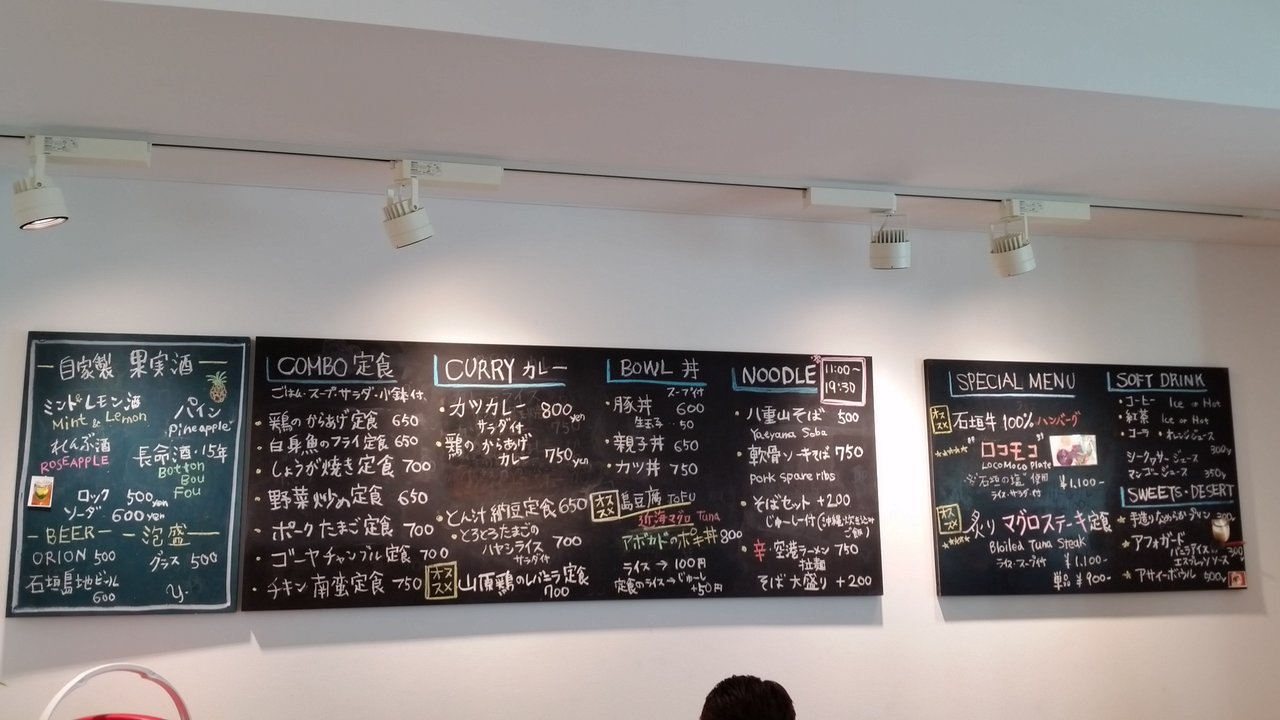 自家製 果実酒
ミント&レモン酒
Mint & Lemon
パイン
Pineapple
れんぶ酒
ROSEAPPLE
長命酒・15年
Botton
Bou
Fou
ロック 500yen
ソーダ 600yen
BEER
泡盛
ORION 500
グラス 500
石垣島地ビール
600
COMBO 定食
ごはん・スープ・サラダ・小鉢付
・鶏のからあげ定食 650
・白身魚のフライ定食 650
・しょうが焼き定食 700
・野菜炒め定食 650
・ポークたまご定食 700
・ゴーヤチャンプル定食 700
・チキン南蛮定食 750
CURRY カレー
・カツカレー 800yen
サラダ付
・鶏のからあげ
カレー 750yen
・とん汁納豆定食 650
・とろとろたまごの
ハヤシライス 700
サラダ付
オススメ
山原鶏のレバニラ定食
700
BOWL 丼
スープ付
・豚丼 600
生玉子・50
・親子丼 650
・カツ丼 750
オススメ
島豆腐 TOFU
近海マグロ Tuna
アボカドのポキ丼 800
ライス → 100円
定食のライス→じゅーし
+50円
NOODLE
11:00~
19:30
・八重山そば 500
Yaeyama Soba
・軟骨ソーキそば 750
pork spare ribs
・そばセット +200
じゅーし付(沖縄炊き込み
ご飯)
・辛・空港ラーメン 750
拉麺
そば大盛り +200
SPECIAL MENU
オススメ
石垣牛100%ハンバーグ
"ロコモコ"
LOCOMOCO PLATE
※"石垣の塩"使用
ライス・サラダ付
¥1,100-
オススメ
炙りマグロステーキ定食
Bloiled Tuna Steak
ライス・スープ付
¥1,100-
単品 ¥900-
SOFT DRINK
・コーヒー Ice or Hot
・紅茶 Ice or Hot
・コーラ ・オレンジジュース
300y
シークァサージュース
マンゴージュース 350y
SWEETS・DESERT
手造りなめらかプリン 300
アフォガード
バニラアイス
エスプレッソソース
300
アサイーボウル 500y